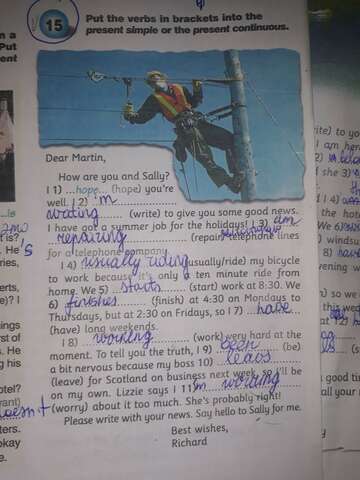 15
Put the verbs in brackets into the
present simple or the present continuous.
Dear Martin,
How are you and Sally?
I 1) ...hope... (hope) you're
well. I 2) 'm
writing (write) to give you some good news.
I have got a summer job for the holidays! I 3) am
repairing (repair) telephone lines
for a telephone company.
I 4) usually riding (usually/ride) my bicycle
to work because it's only a ten minute ride from
home. We 5) starts (start) work at 8:30. We
6) finishes (finish) at 4:30 on Mondays to
Thursdays, but at 2:30 on Fridays, so I 7) have
(have) long weekends.
I 8) working (work) very hard at the
moment. To tell you the truth, I 9) been (be)
a bit nervous because my boss 10)
(leave) for Scotland on business next week, so I'll be
on my own. Lizzie says I 11) 'm
(worry) about it too much. She's probably right!
Please write with your news. Say hello to Sally for me.
Best wishes,
Richard